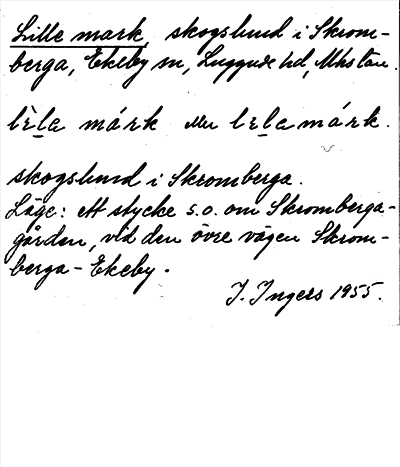 Lille mark, skogslund i Skrom-
berga, Ekeby sn, Luggude hd, Mhs län.
lè̱la márk eller lela márk.
skogslund i Skromberga.
Läge: ett stycke s.o. om Skromberga-
gården, vid den övre vägen Skrom-
berga - Ekeby.
I. Ingers 1955.